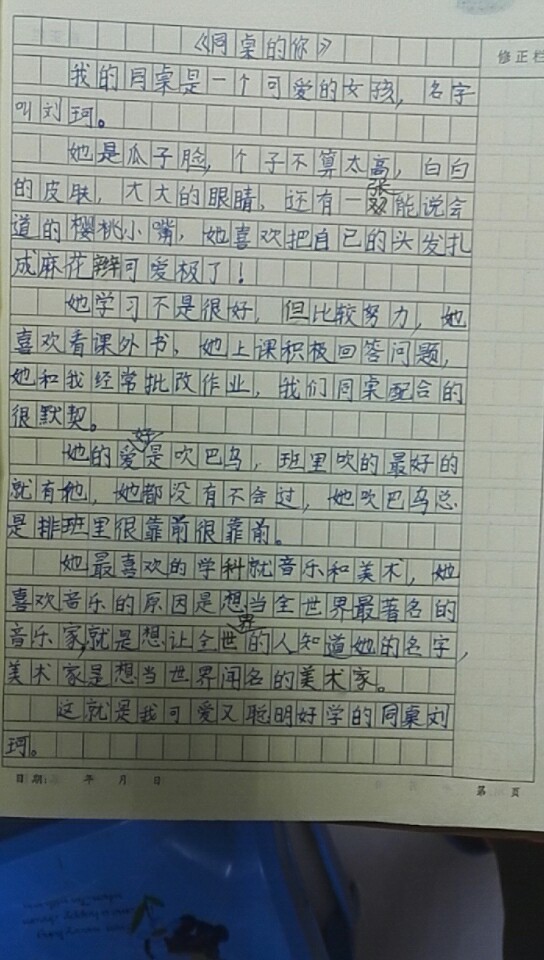 《同桌的你》
修正栏
我的同桌是一个可爱的女孩，名字
叫刘珂。
她是瓜子脸，个子不算太高，白白
的皮肤，大大的眼睛，还有一张能说会
道的樱桃小嘴，她喜欢把自己的头发扎
成麻花辫可爱极了！
她学习不是很好，但比较努力，她
喜欢看课外书，她上课积极回答问题，
她和我经常批改作业，我们同桌配合的
很默契。
她的爱好是吹巴乌，班里吹的最好的
就有她，她都没有不会过，她吹巴乌总
是排班里很靠前很靠前。
她最喜欢的学科就音乐和美术，她
喜欢音乐的原因是想当全世界最著名的
音乐家，就是想让全世界的人知道她的名字，
美术家是想当世界闻名的美术家。
这就是我可爱又聪明好学的同桌刘
珂。
日期： 年 月 日
第 页